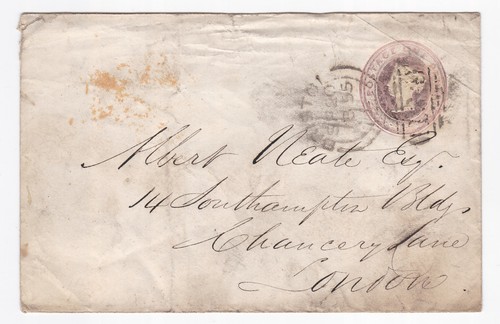 POSTAGE
Albert Neate Esq.
14 Southampton Bldgs
Chancery Lane
London